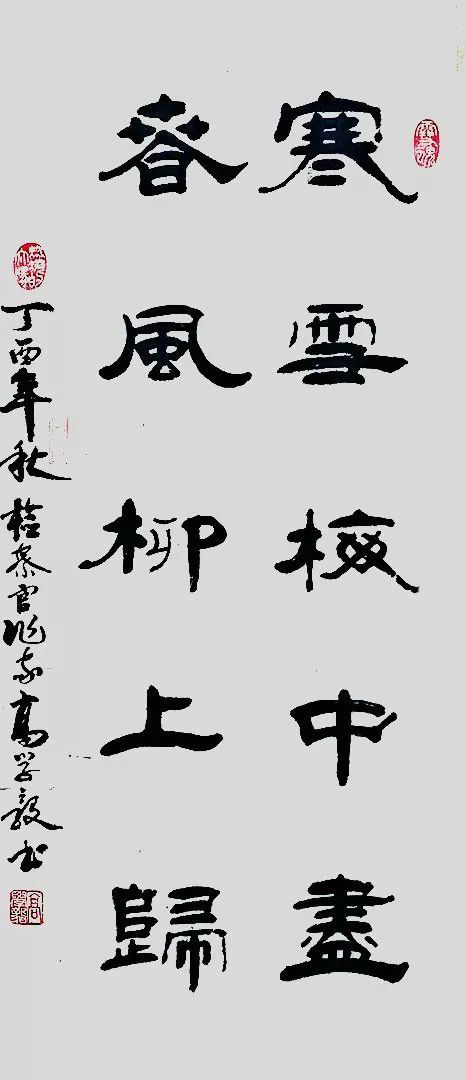 寒雪梅中盡
春風柳上歸
丁酉年秋 高学毅书